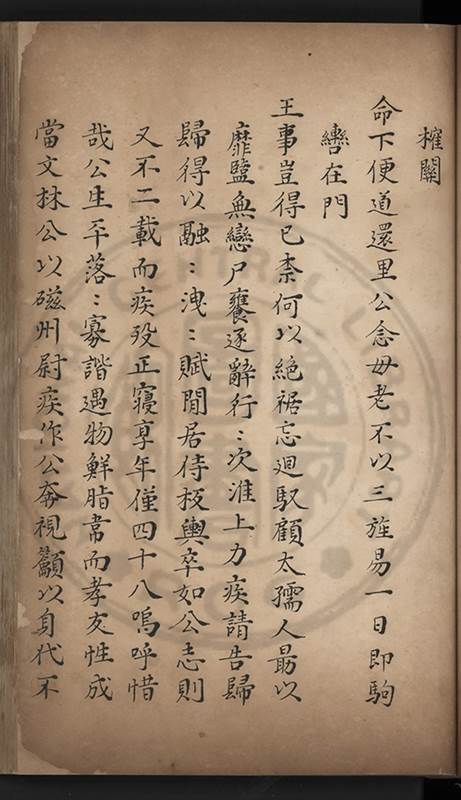 榷關
命下便道還里公念毋老不以三旌易一日即駒
轡在門
王事豈得已柰何以絶裾忘迴馭顧太孺人勗以
靡盬無戀户饔逐辭行〻次淮上力疾請告歸
歸得以融〻洩〻賦閒居侍板輿卒如公志則
又不二載而疾殁正寢享年僅四十八嗚呼惜
哉公生平落〻寡諧遇物鮮脂韋而孝友性成
當文林公以磁州尉疾作公奔視籲以身代不
CENTRAL LIBRARY